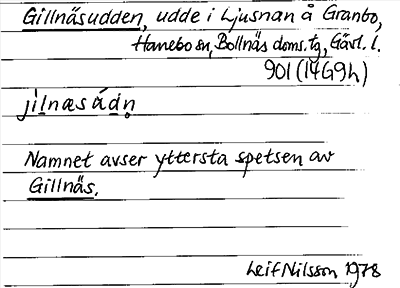 Gillnäsudden, udde i Ljusnan å Granbo,
Hanebo sn, Bollnäs doms. tg, Gävl. l.
901 (14G9h)
jilnæsádn̥
Namnet avser yttersta spetsen av
Gillnäs.
Leif Nilsson 1978